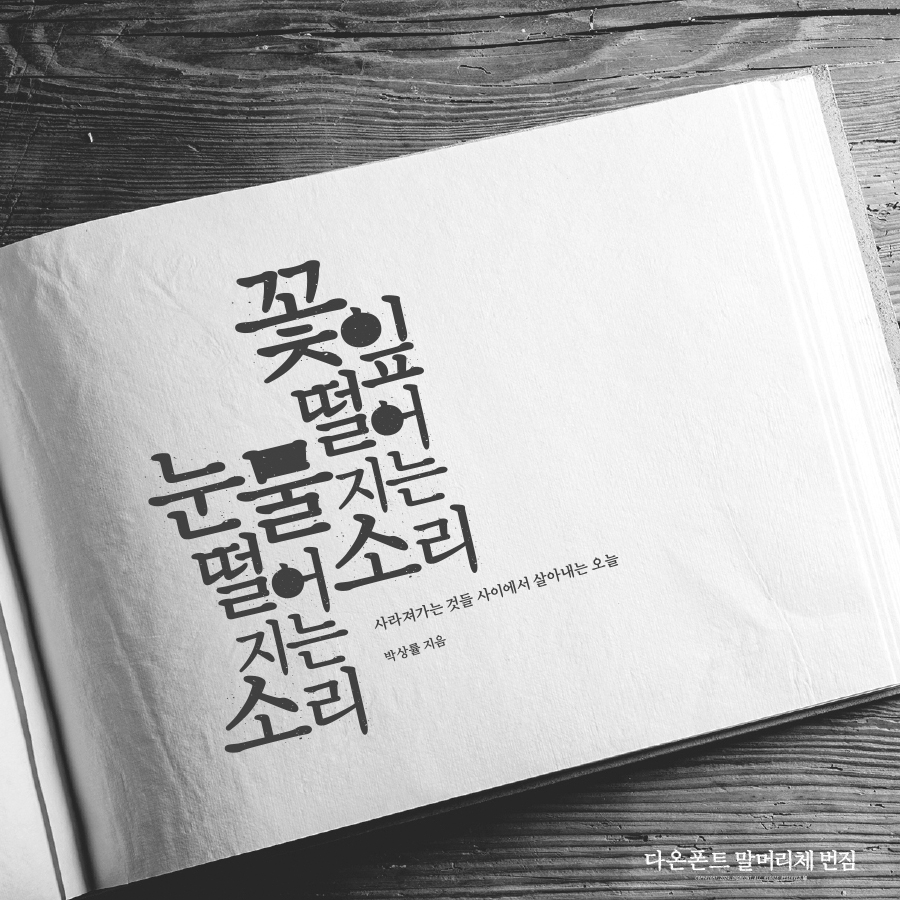 꽃잎
떨어
지는
소리
눈물
떨어
지는
소리
사라져가는 것들 사이에서 살아내는 오늘
박상률 지음
다온폰트 말머리체 번짐